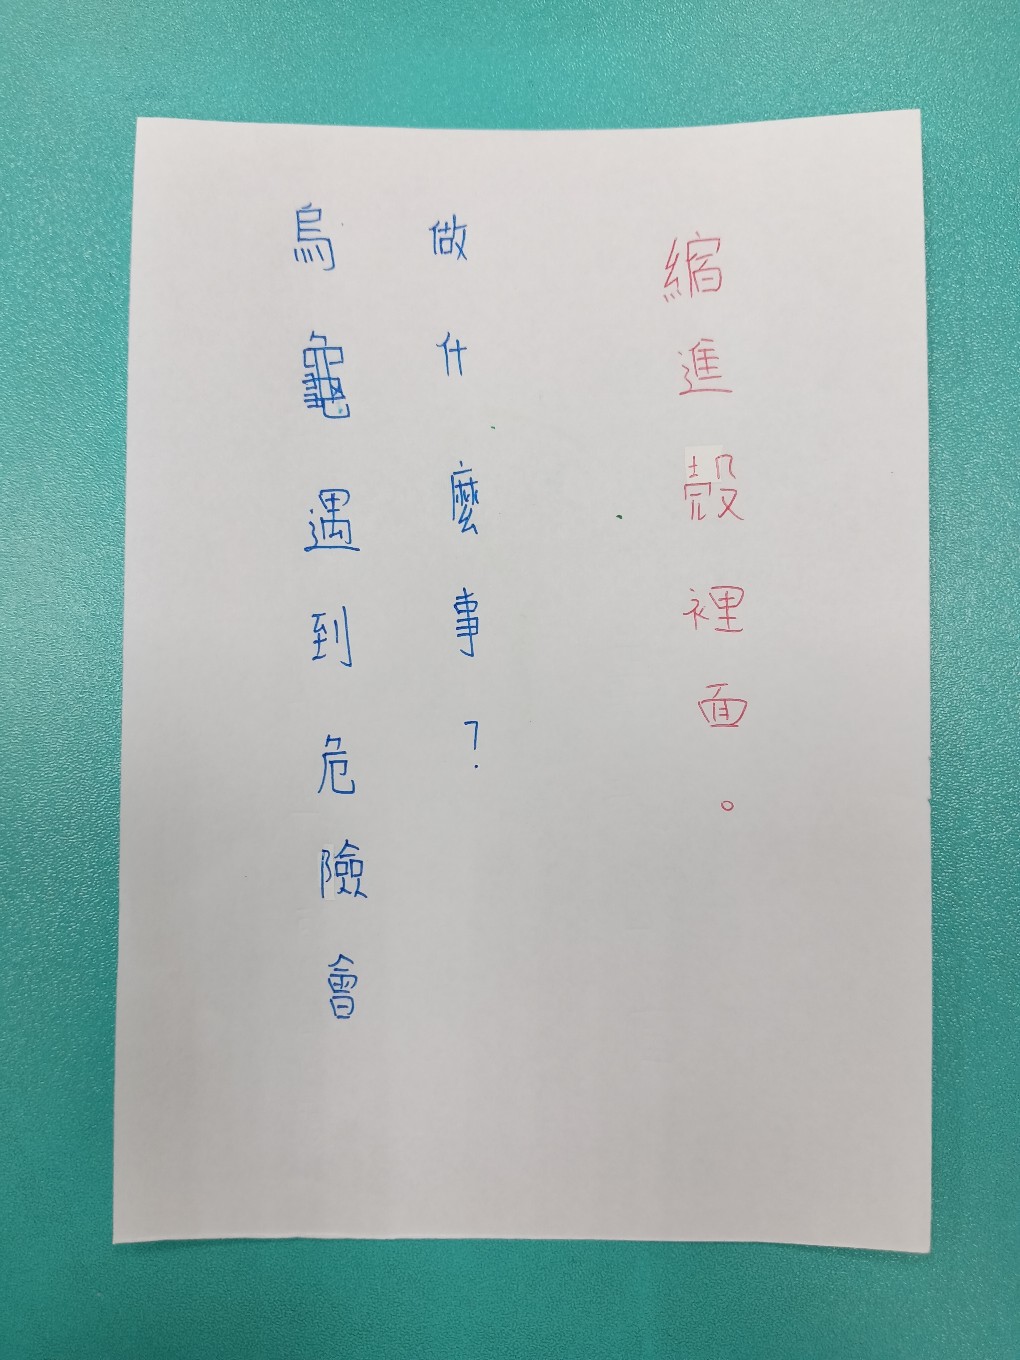 烏龜遇到危險會
做什麼事?
縮進殼裡面。